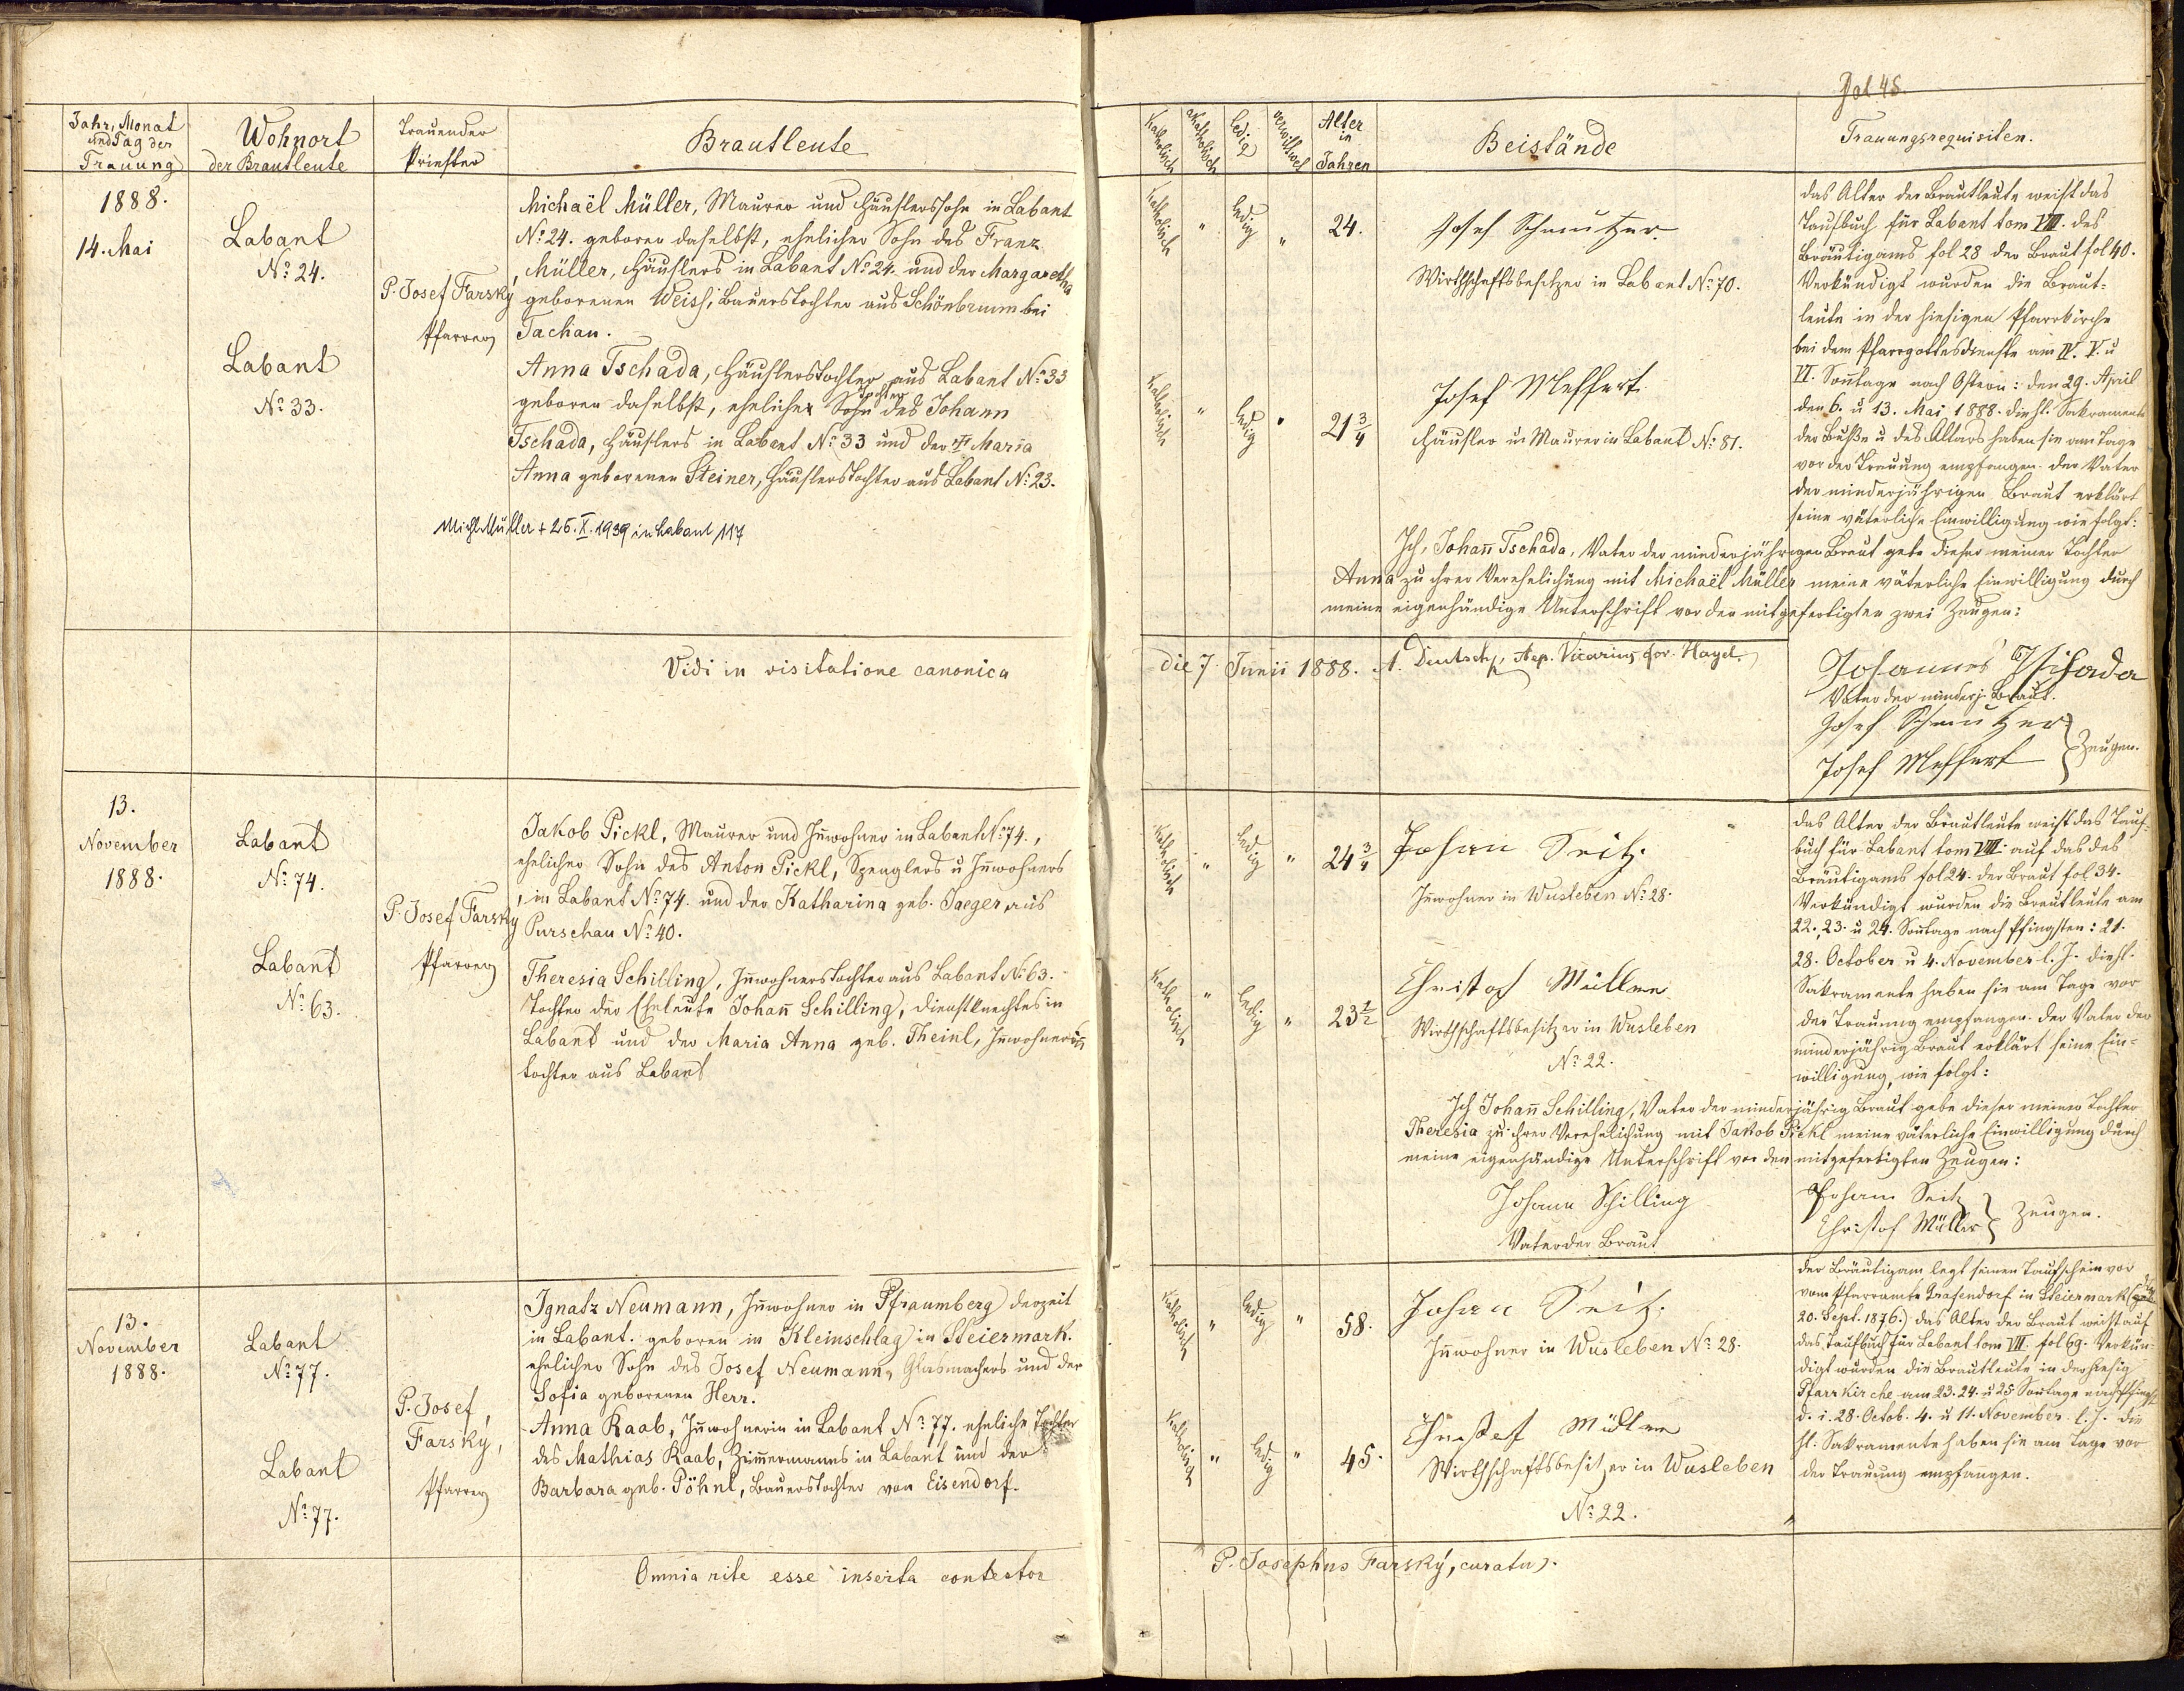 Fol 45.
Jahr, Monat
und Tag der
Trauung
Wohnort
der Brautleute
Trauender
Priester
Brautleute
Katholisch
Akatholisch
ledig
verwittwet
Alter
in
Jahren
Beistände
Trauungsrequisiten.
1888.
14. Mai
Labant
No. 24.
Labant
No. 33.
P. Josef Farský
Pfarrer
Michaël Müller, Maurer und Häuslerssohn in Labant
No. 24. geboren daselbst, ehelicher Sohn des Franz
Müller, Häuslers in Labant No. 24. und der Margaretha
geborenen Weiss, Bauerstochter aus Schönbrunn bei
Tachau.
Anna Tschada, Häuslerstochter aus Labant No. 33
Tochter
geboren daselbst, ehelicher Sohn des Johann
Tschada, Häuslers in Labant No. 33 und der Maria
Anna geborenen Steiner, Häuslerstochter aus Labant No. 23.
Michl Müller + 25. X. 1939 in Labant 117
Katholisch
"
ledig
"
24.
Josef Schmutzer.
Wirthschaftsbesitzer in Labant No. 70.
Katholisch
"
ledig
"
21 3/4
Josef Meffert
Häusler u Maurer in Labant No. 81.
das Alter der Brautleute weist das
Taufbuch für Labant tom VIII. des
Bräutigams fol 28 der Braut fol 40.
Verkündigt wurden die Braut-
leute in der hiesigen Pfarrkirche
bei dem Pfarrgottesdienste am IV. V. u
VI. Sontage nach Ostern: den 29. April
den 6. u 13. Mai 1888. die hl. Sakramente
der Buße u des Altars haben sie am Tage
vor der Trauung empfangen. der Vater
der minderjährigen Braut erklärt
seine väterliche Einwilligung wie folgt:
Ich, Johann Tschada, Vater der minderjährigen Braut gebe dieser meiner Tochter
Anna zu ihrer Verehelichung mit Michaël Müller meine väterliche Einwilligung durch
meine eigenhändige Unterschrift vor den mitgefertigten zwei Zeugen:
Johannes Tschada
Vater der minderj. Braut.
Josef Schmutzer
Josef Meffert
Zeugen.
Vidi in visitatione canonica
die 7 Junii 1888. A. Deutsch, Aep. Vicarius for. Hayd.
13.
November
1888.
Labant
No. 74.
Labant
No. 63.
P. Josef Farský
Pfarrer
Jakob Pickl, Maurer und Inwohner in Labant No. 74.,
ehelicher Sohn des Anton Pickl, Spenglers u Inwohners
in Labant No. 74. und der Katharina geb. Jaeger aus
Purschau No. 40.
Theresia Schilling, Inwohnerstochter aus Labant No. 63.
Tochter der Eheleute Johann Schilling, Dienstknechtes in
Labant und der Maria Anna geb. Theinl, Inwohnerin
tochter aus Labant
Katholisch
"
ledig
"
24 3/4
Johann Seitz.
Inwohner in Wusleben No. 28.
Katholisch
"
ledig
"
23 1/2
Christof Müller
Wirthschaftsbesitzer in Wusleben
No. 22.
das Alter der Brautleute weist das Tauf-
buch für Labant tom VIII. auf das des
Bräutigams fol 24. der Braut fol 34.
Verkündigt wurden die Brautleute am
22., 23. u 24. Sontage nach Pfingsten: 21.
28. October u 4. November l. J. die hl.
Sakramente haben sie am Tage vor
der Trauung empfangen. der Vater der
minderjährig. Braut erklärt seine Ein-
willigung, wie folgt:
Ich Johann Schilling, Vater der minderjährig Braut gebe dieser meiner Tochter
Theresia zu ihrer Verehelichung mit Jakob Pickl meine väterliche Einwilligung durch
meine eigenhändige Unterschrift vor den mitgefertigten Zeugen:
Johann Schilling
Vater der Braut
Johann Seitz
Christof Müller
Zeugen.
13.
November
1888.
Labant
No. 77.
Labant
No. 77.
P. Josef
Farský,
Pfarrer
Ignatz Neumann, Inwohner in Pfraumberg derzeit
in Labant. geboren in Kleinschlag in Steiermark.
ehelicher Sohn des Josef Neumann, Glasmachers und der
Sofia geborenen Herr.
Anna Raab, Inwohnerin in Labant No. 77. eheliche Tochter
des Mathias Raab, Zimmermanns in Labant und der
Barbara geb. Pöhnl, Bauerstochter von Eisendorf.
Katholisch
"
ledig
"
58.
Johann Seitz.
Inwohner in Wusleben No. 28.
Katholisch
"
ledig
"
45.
Christof Müller
Wirthschaftsbesitzer in Wusleben
No. 22.
der Bräutigam legt seinen Taufschein vor
vom Pfarramte Grafendorf in Steiermark
20. Sept. 1876.) das Alter der Braut weist auf
das Taufbuch für Labant tom VII. fol 69. Verkün-
digt wurden die Brautleute in der hiesig
Pfarrkirche am 23. 24. u 25 Sontage nach Pfingst
d. i. 28. Octob. 4. u 11. November l. J. die
hl. Sakramente haben sie am Tage vor
der Trauung empfangen.
Omnia rite esse inserta contestor
P. Josephus Farský, curatus.